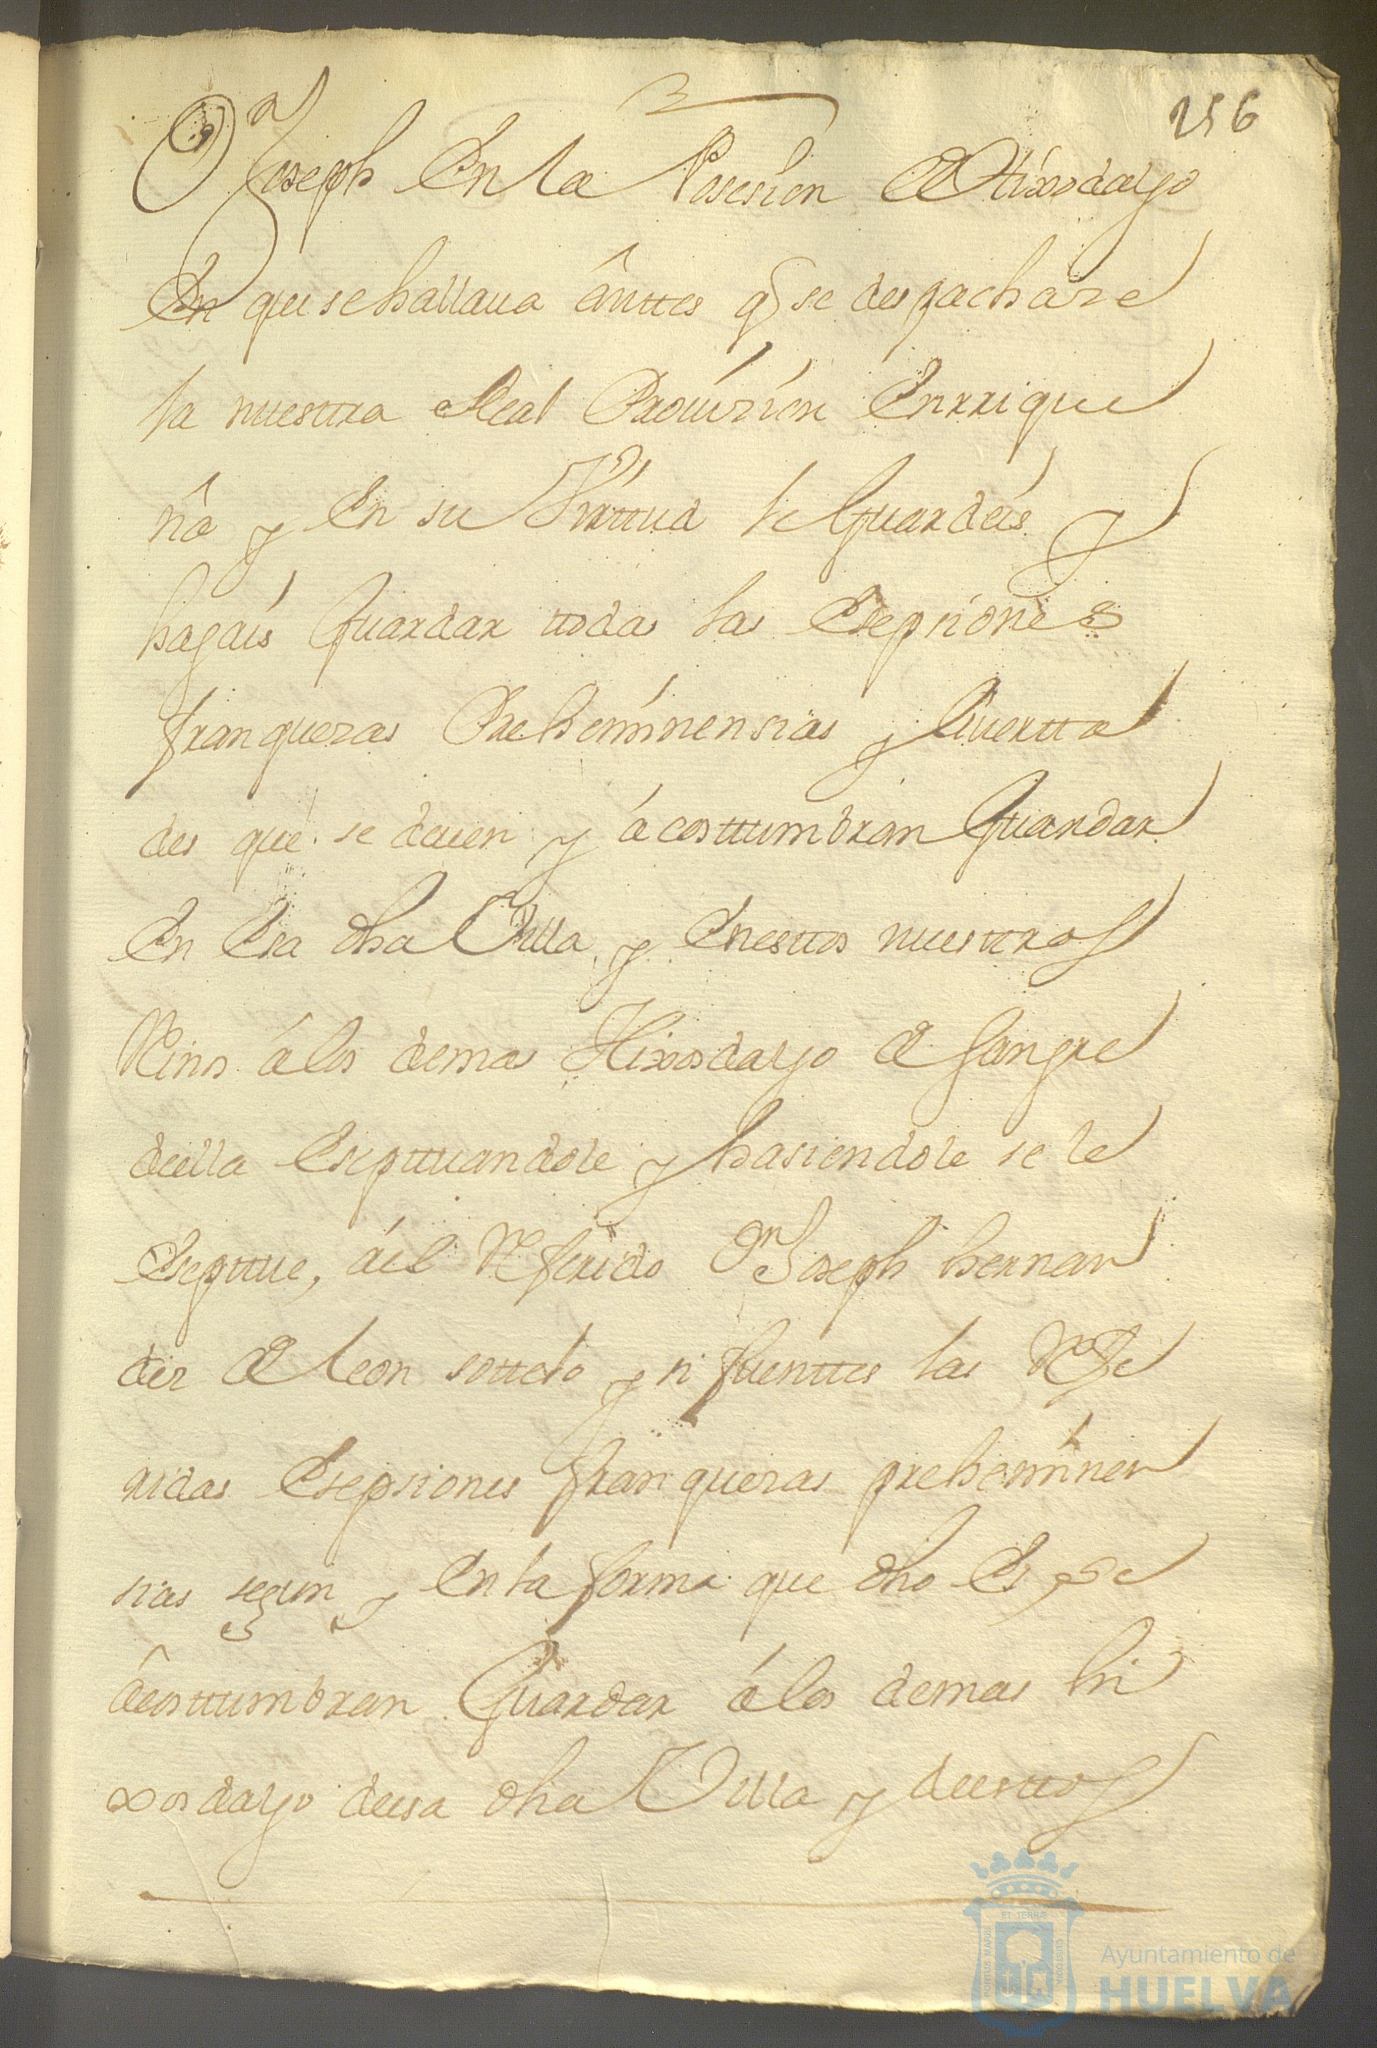 256
Dn Joseph En la Posesion de Hixodalgo
En que se hallaua ânttes q se despachare
la nuestra Real Prouizion Enrrique
ña y En su Virttud le Guardeis y
hagais Guardar ttodas las Esepsiones
franquezas Preheminensias y liuertta
des que se deuen y ácosttumbran Guardar
En Esa dha Villa y Enesttos nuesttros
Reinos álos demas Hixosdalgo de sangre
deella Eseptuandole y hasiendole se le
Esepttue, áel Referido Dn Joseph hernan
dez de leon sottelo y sifuenttes las Refe
ridas Esepsiones franquezas preheminen
sias segun y En la forma que dho Es y se
âcosttumbran Guardar álos demas hi
xosdalgo deesa dha Villa y deesttos
Ayuntamiento de
HUELVA